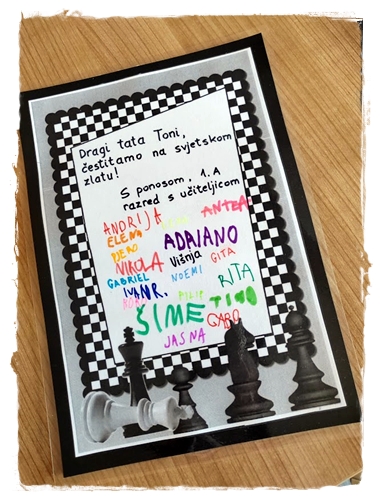 Dragi tata Toni,
čestitamo na svjetskom
zlatu!
S ponosom, 1.A
razred s učiteljicom
ANDRIJA ANTEA
ELENA
PJERO ADRIANO
NIKOLA Višnja GITA
GABRIEL NOEMI RITA
IVANR.
FILIP TINO
ŠIME GABO
JASNA